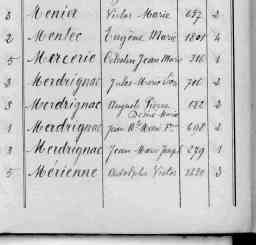 3 Menier Victor Marie 697 2
2 Menlec Eugène Marie 1801 4
5 Mercerie Célestin Jean Marie 316 1
3 Merdrignac Jules Marie 706 2
3 Merdrignac Auguste Pierre 622 2
Désiré Marie
1 Merdrignac Jean Bte Marie 608 2
3 Merdrignac Jean Marie Joseph 279 1
5 Mérienne Adolphe Victor 1220 3